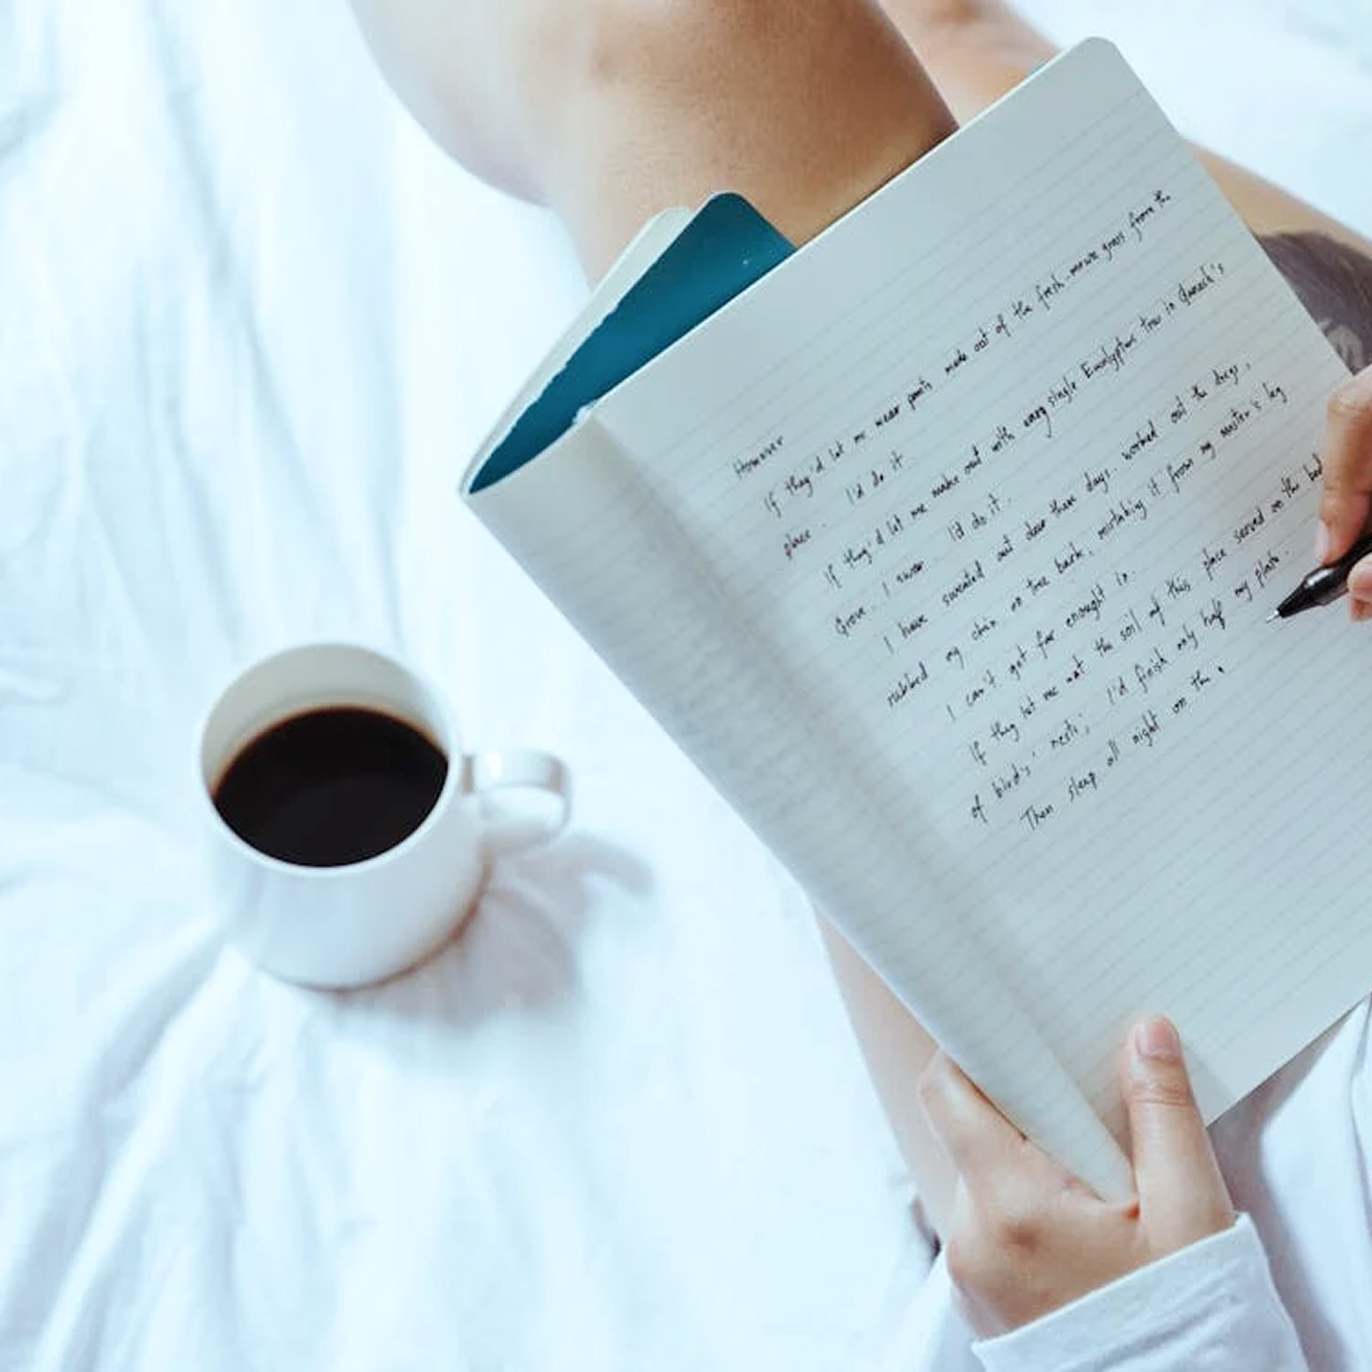 However
If they'd let me wear pants made out of the fresh-mown grass from the
place. I'd do it.
If they'd let me make out with every single Eucalyptus tree in
Grove. I swear I'd do it.
I have sweated out dew these days. worked out the dregs,
rubbed my chin on tree bark, mistaking it from my master's leg
I can't get far enough in.
If they let me eat the soil of this place served on the bed
of birds' nests; I'd finish only half my plate.
Then sleep all night on the